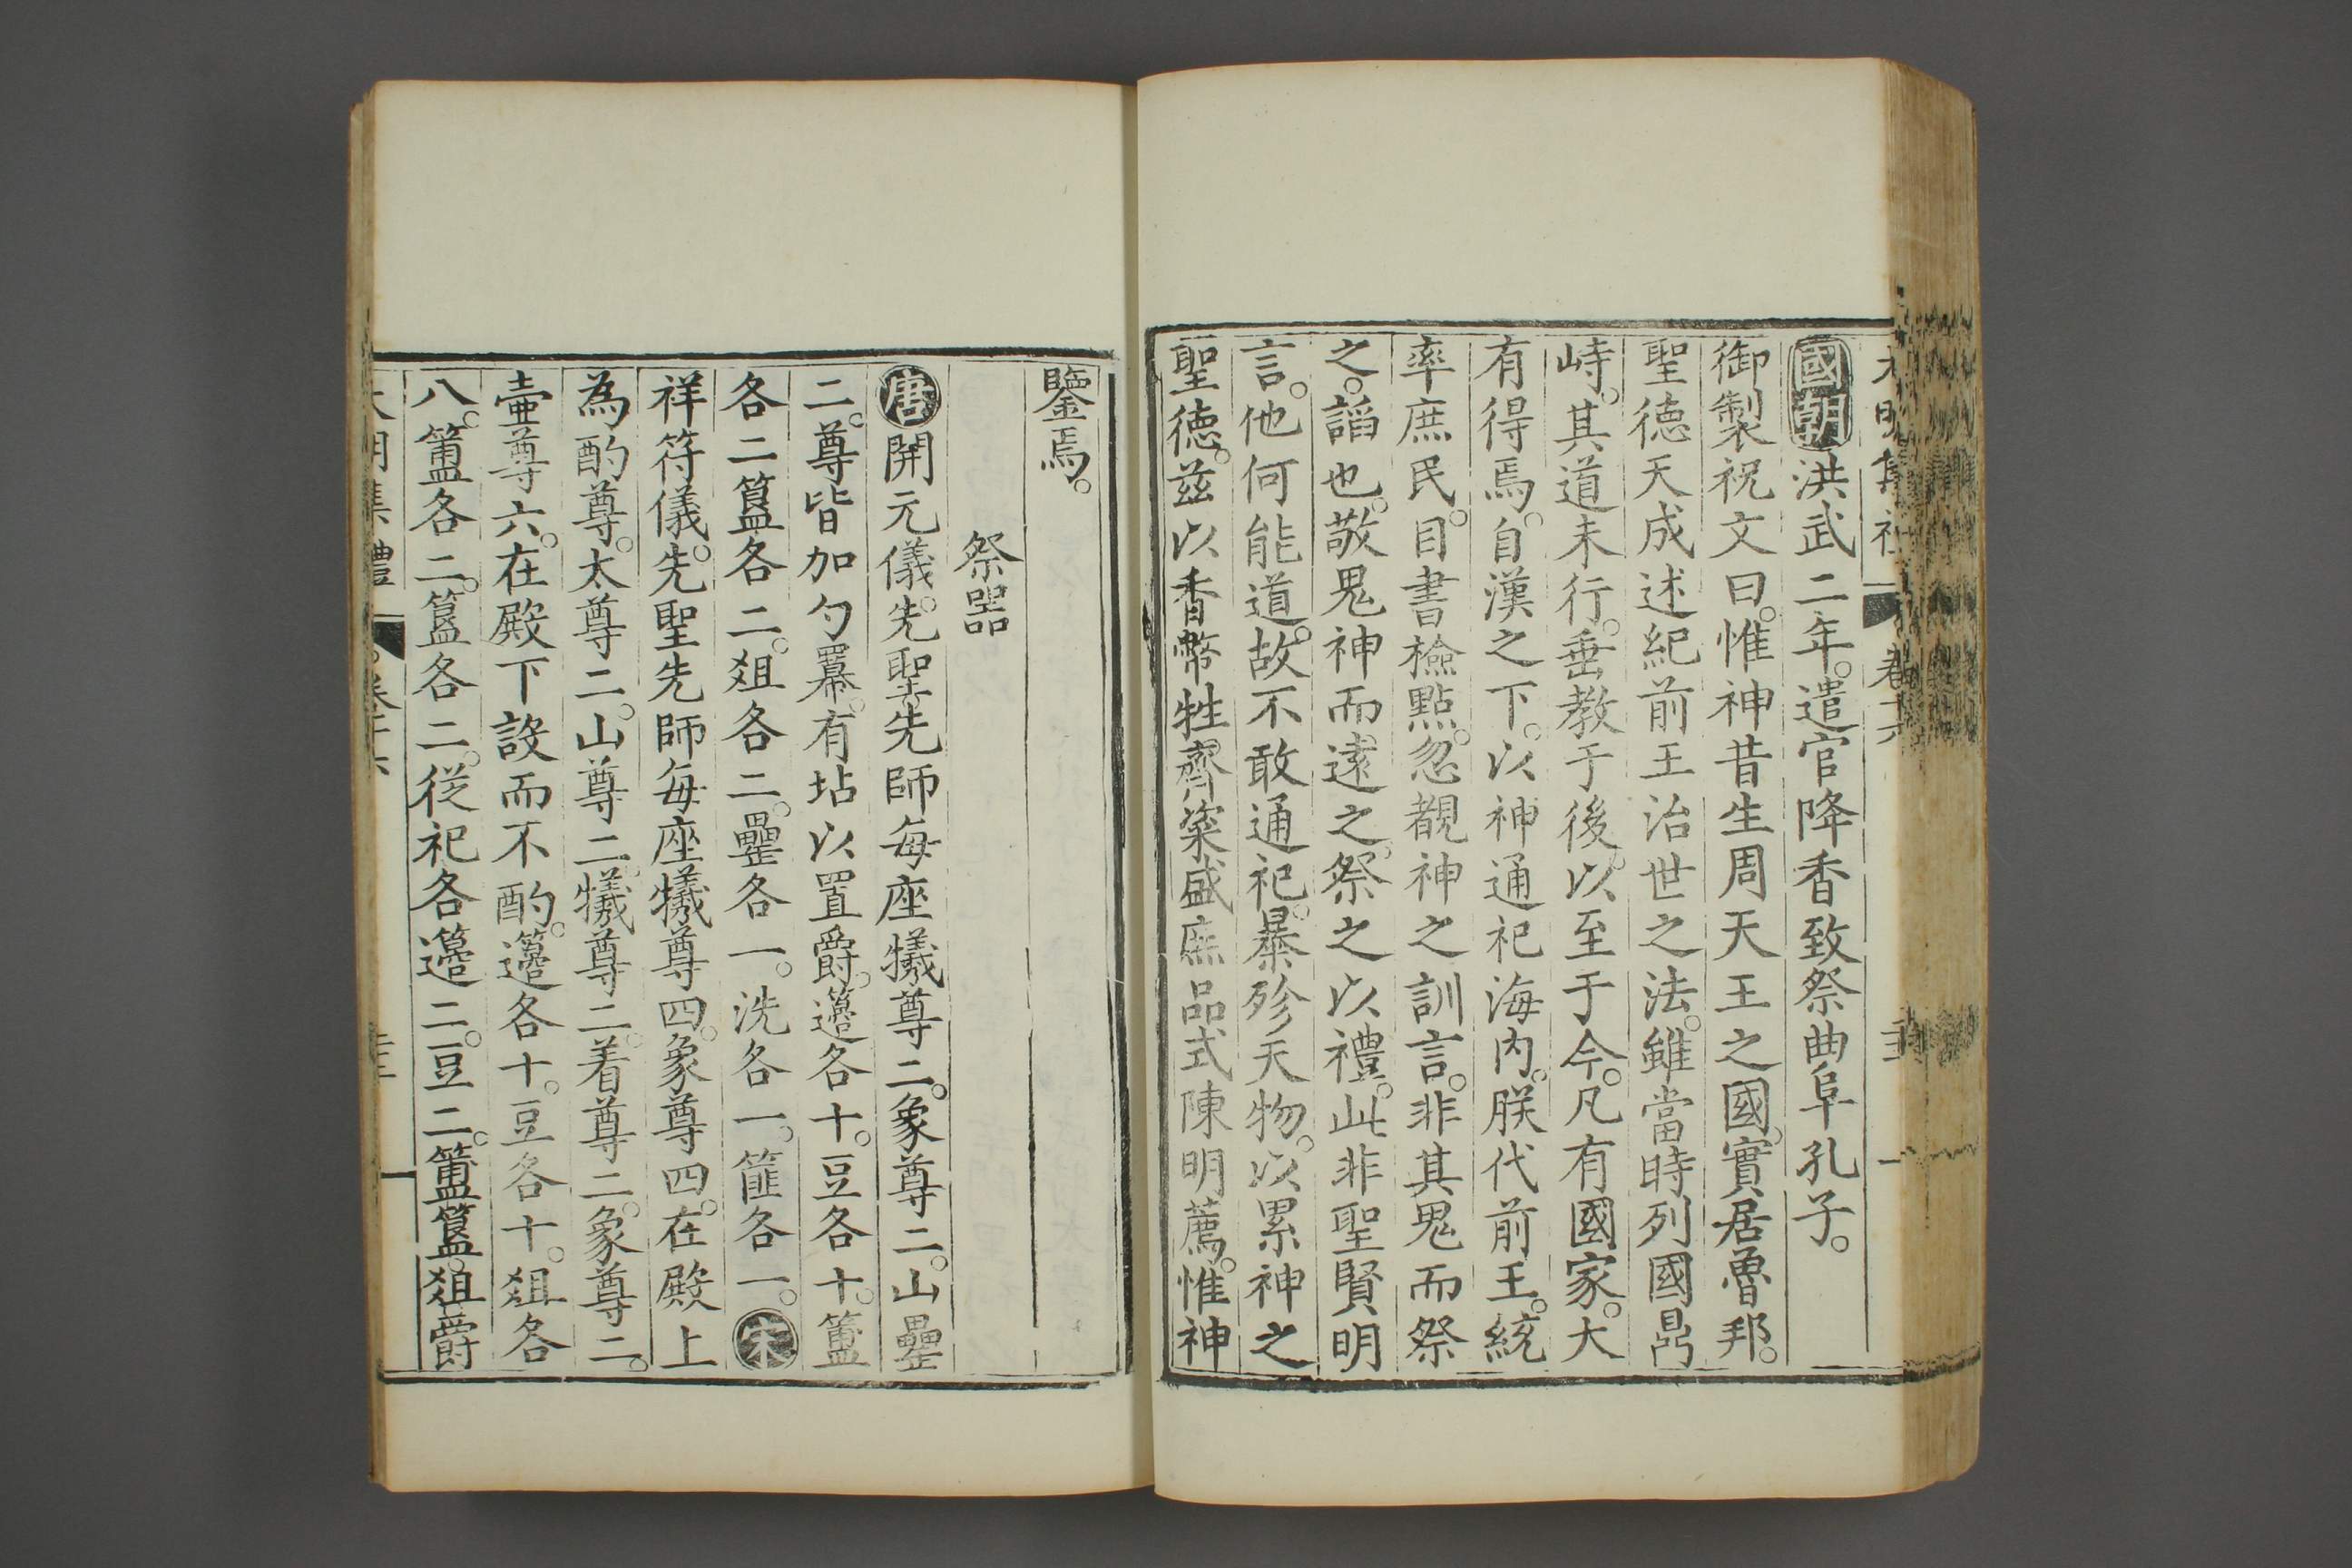 國朝洪武二年。遣官降香致祭曲阜孔子。
御製祝文曰。惟神昔生周天王之國。實居魯邦。
聖德天成述紀前王治世之法。雖當時列國鼎
峙。其道未行。垂教于後。以至于今。凡有國家。大
有得焉。自漢之下。以神通祀海内。朕代前王。統
率庶民。目書檢點。忽覩神之訓言。非其鬼而祭
之。謟也。敬鬼神而遠之。祭之以禮。此非聖賢明
言。他何能道。故不敢通祀。暴殄天物。以累神之
聖德。茲以香幣牲齊粢盛庶品式陳明薦。惟神
鑒焉。
祭器
唐開元儀。先聖先師每座犧尊二。象尊二。山罍
二。尊皆加勺羃。有坫以置爵。籩各十。豆各十。簠
各二簋各二。爼各二。罍各一。洗各一。篚各一。宋
祥符儀。先聖先師每座犧尊四。象尊四。在殿上
為酌尊。太尊二。山尊二。犧尊二。着尊二。象尊二。
壷尊六。在殿下設而不酌。籩各十。豆各十。爼各
八。簠各二。簋各二。從祀各籩二。豆二。簠簋。爼爵
大明集禮 卷十六